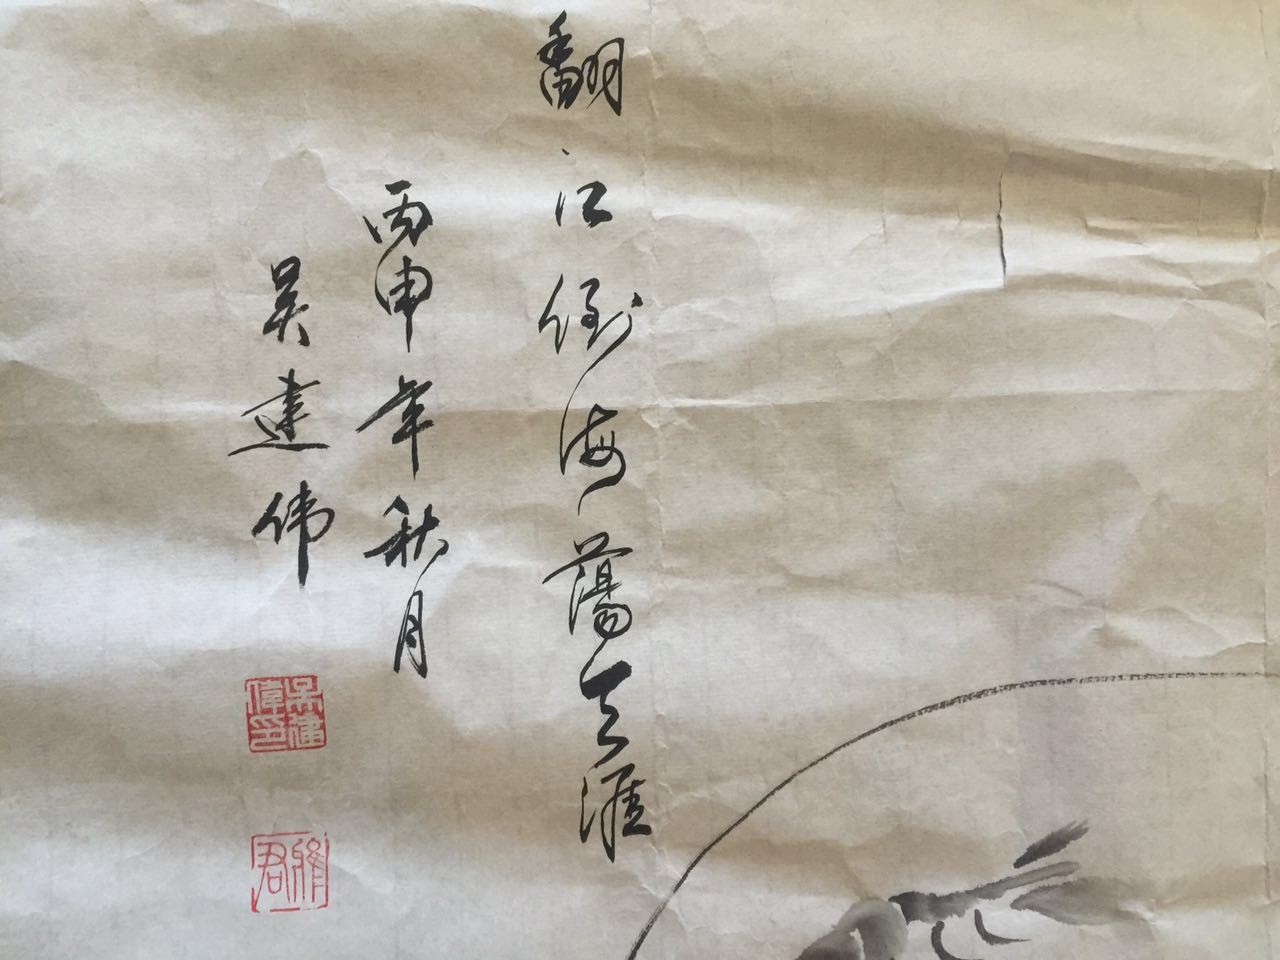 翻江倒海蕩天涯
丙申年秋月
吴建伟
吴建偉印